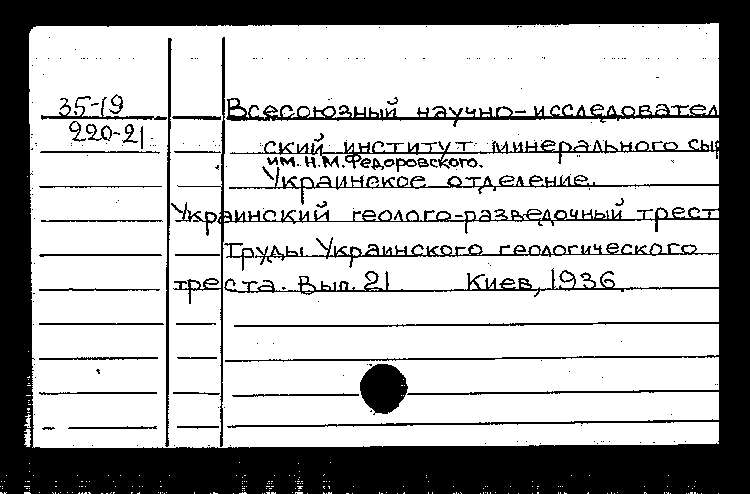 35-19 Всесоюзный научно-исследовател
220-21 ский институт минерального сыр
им. Н.М.Федоровского.
Украинское отделение.
Украинский геолого-разведочный трест
Труды Украинского геологического
треста. Вып. 21 Киев, 1936.